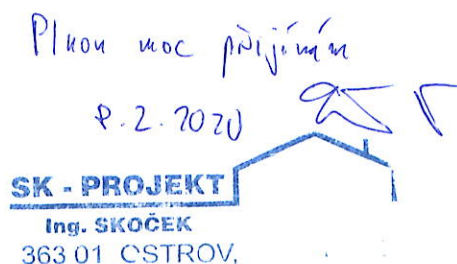 Plnou moc přijímám
8.2.2020
SK - PROJEKT
Ing. SKOČEK
363 01 OSTROV,